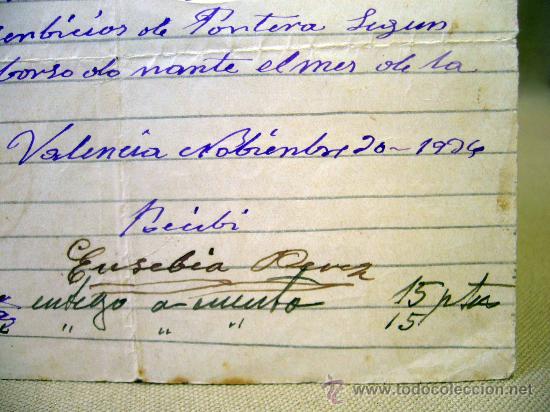 serbicios de Pontera Segun
borso do nante el mes de la
Valencia Nobienbre 20-1926
Recibi
Eusebia Perez
entrego a cuenta 15 ptas
" " " 15
todocoleccion
www.todocoleccion.net